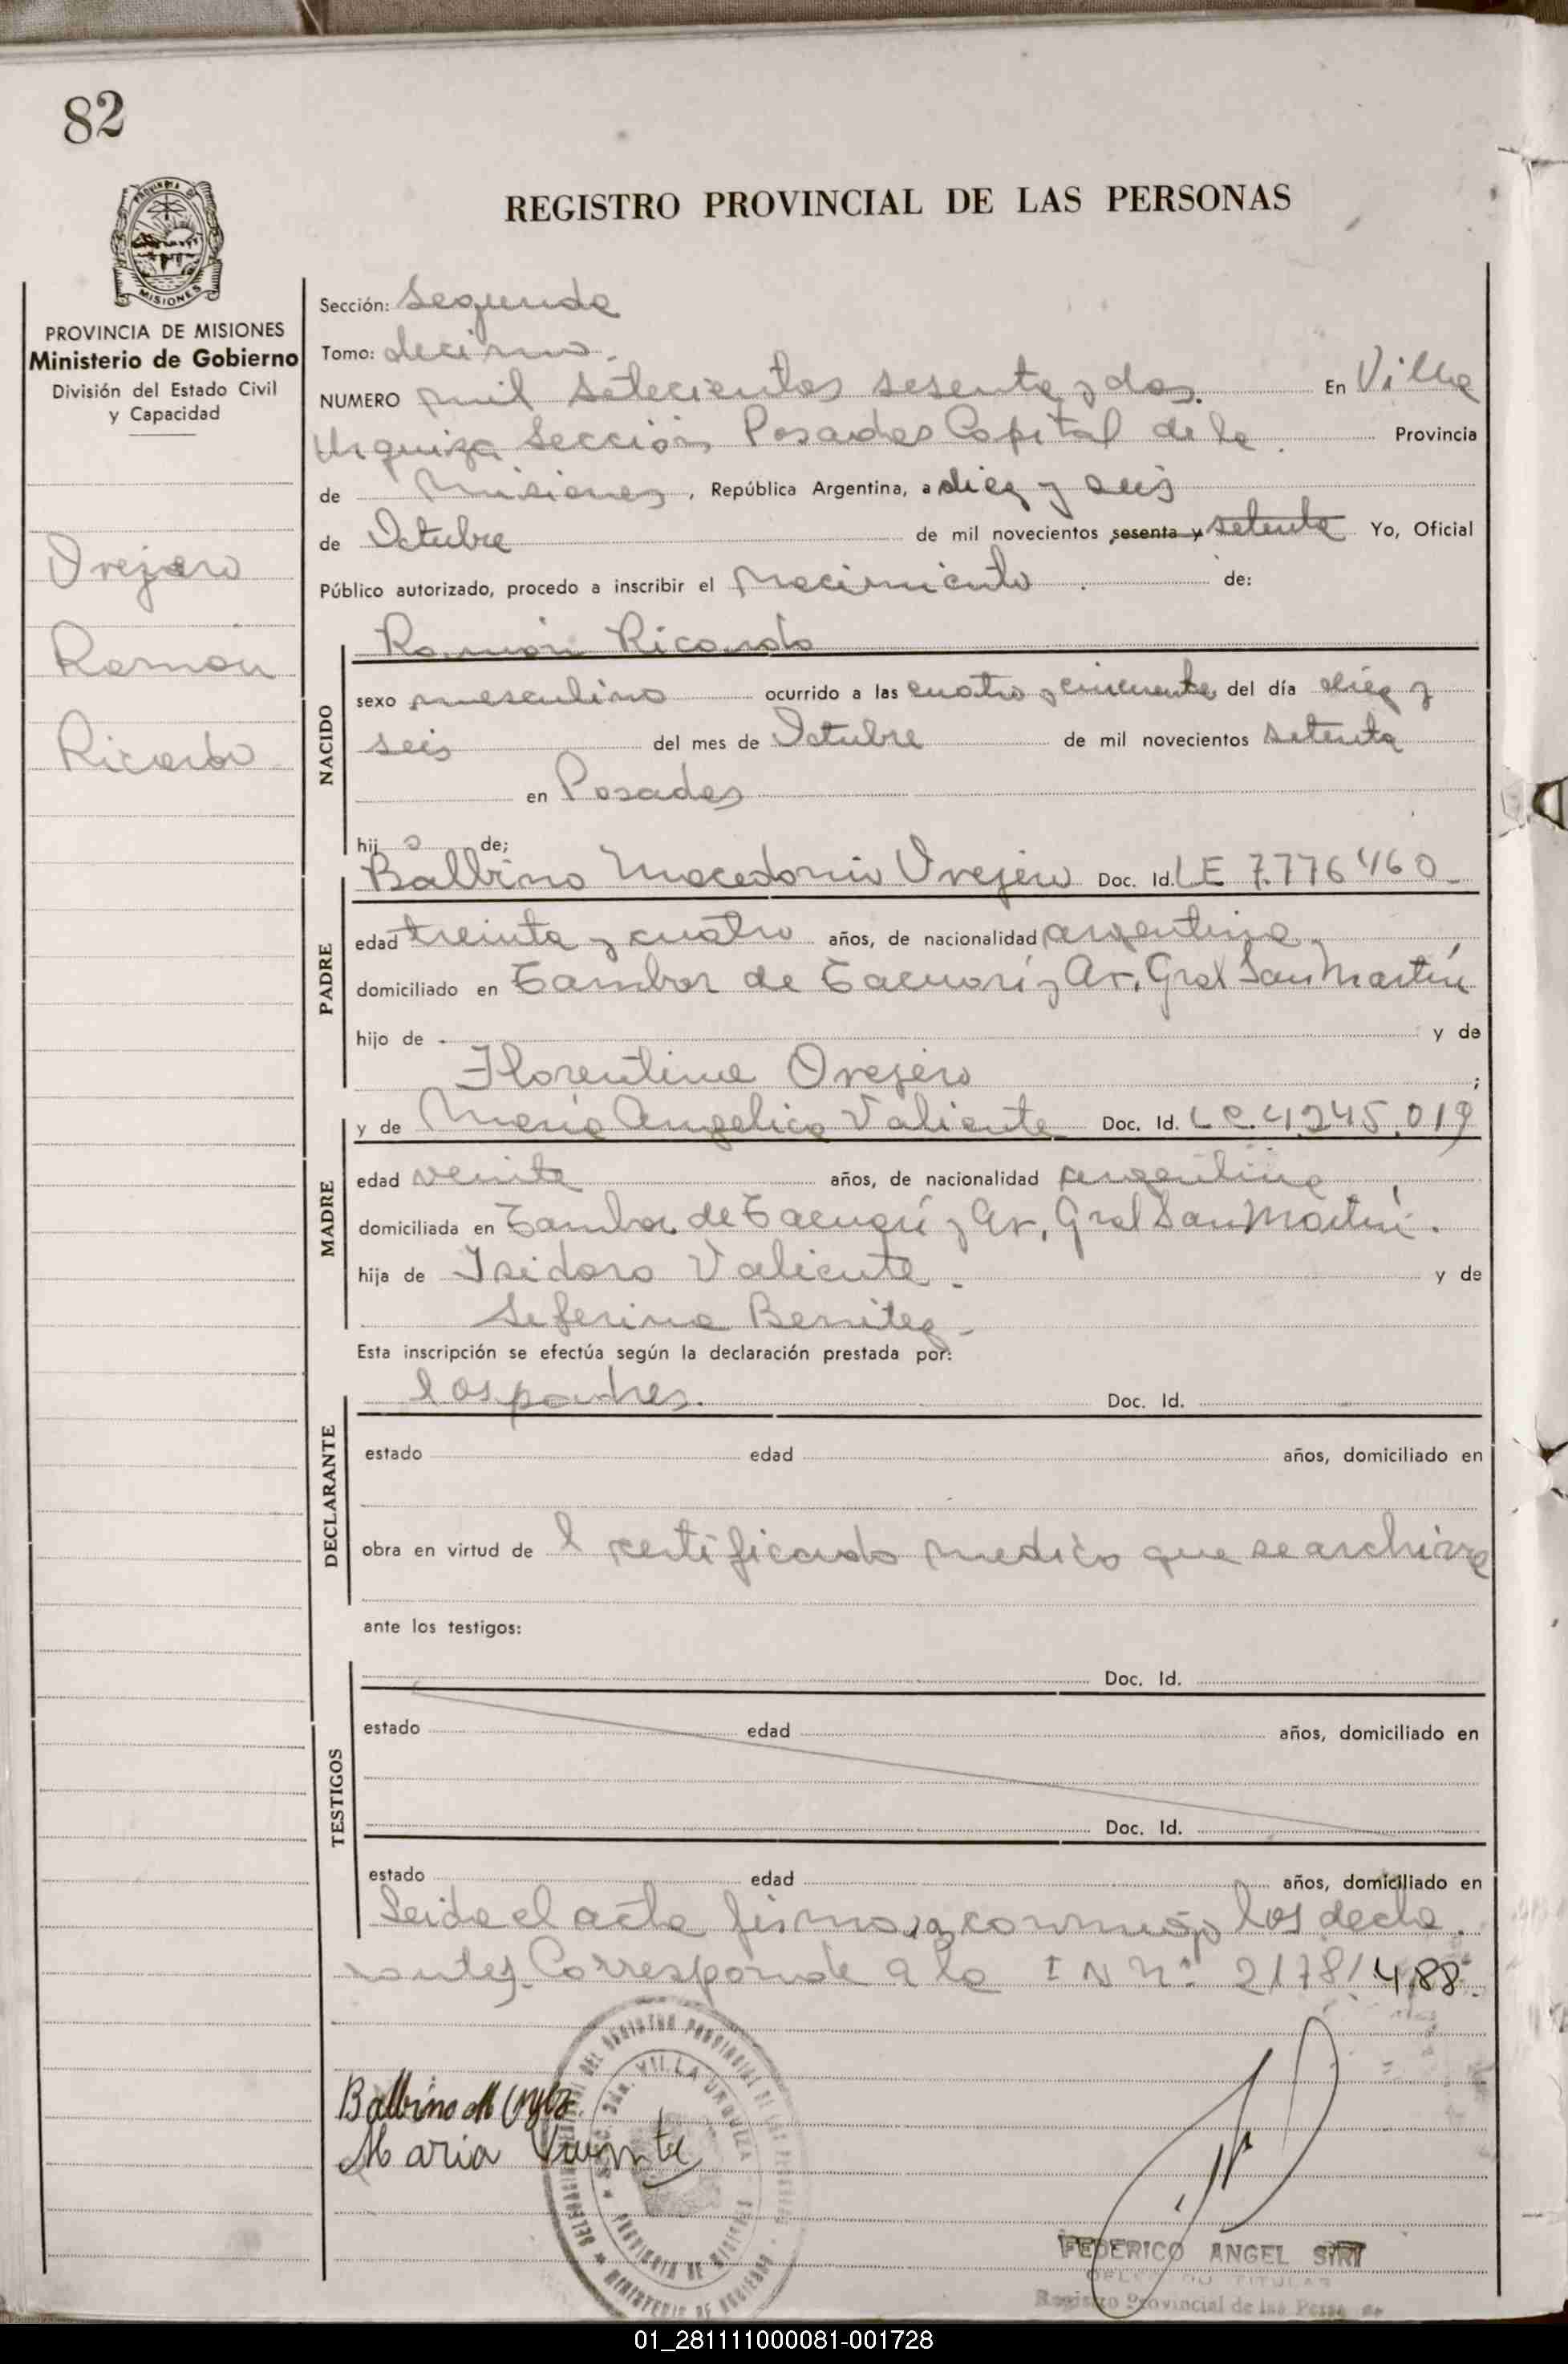 82
REGISTRO PROVINCIAL DE LAS PERSONAS
MISIONES
PROVINCIA DE MISIONES
Ministerio de Gobierno
División del Estado Civil
y Capacidad
Orejero
Ramon
Ricardo
Sección: Segunda
Tomo: decimo.
NUMERO mil setecientos sesenta y dos. En Villa
Urquiza Sección Posadas Capital de la Provincia
de Misiones, República Argentina, a diez y seis
de Octubre de mil novecientos sesenta y setenta Yo, Oficial
Público autorizado, procedo a inscribir el nacimiento de:
NACIDO
Ramón Ricardo
sexo masculino ocurrido a las cuatro y cincuenta del día diez y
seis del mes de Octubre de mil novecientos setenta
en Posadas
hijo de;
PADRE
Balbino Macedonio Orejero Doc. Id. LE 7.776460
edad treinta y cuatro años, de nacionalidad argentina,
domiciliado en Tambor de Tacuarí y Av. Gral San Martín
hijo de y de
Florentina Orejero ;
MADRE
y de María Angelica Valiente Doc. Id. LC. 4.245.019
edad veinte años, de nacionalidad argentina
domiciliada en Tambor de Tacuarí y Av. Gral San Martín.
hija de Isidoro Valiente. y de
Seferina Benitez-
Esta inscripción se efectúa según la declaración prestada por:
DECLARANTE
los padres. Doc. Id.
estado edad años, domiciliado en
obra en virtud de l certificado medico que se archiva
ante los testigos:
TESTIGOS
Doc. Id.
estado edad años, domiciliado en
Doc. Id.
estado edad años, domiciliado en
Leida el acta firman conmigo los decla
rantes. Corresponde a la I N Nº 2178/ 4,88.
Balbino M
Maria
VILLA URQUIZA
PROVINCIA DE MISIONES
FEDERICO ANGEL SIRI
TITULAR
Registro Provincial de las
01_281111000081-001728